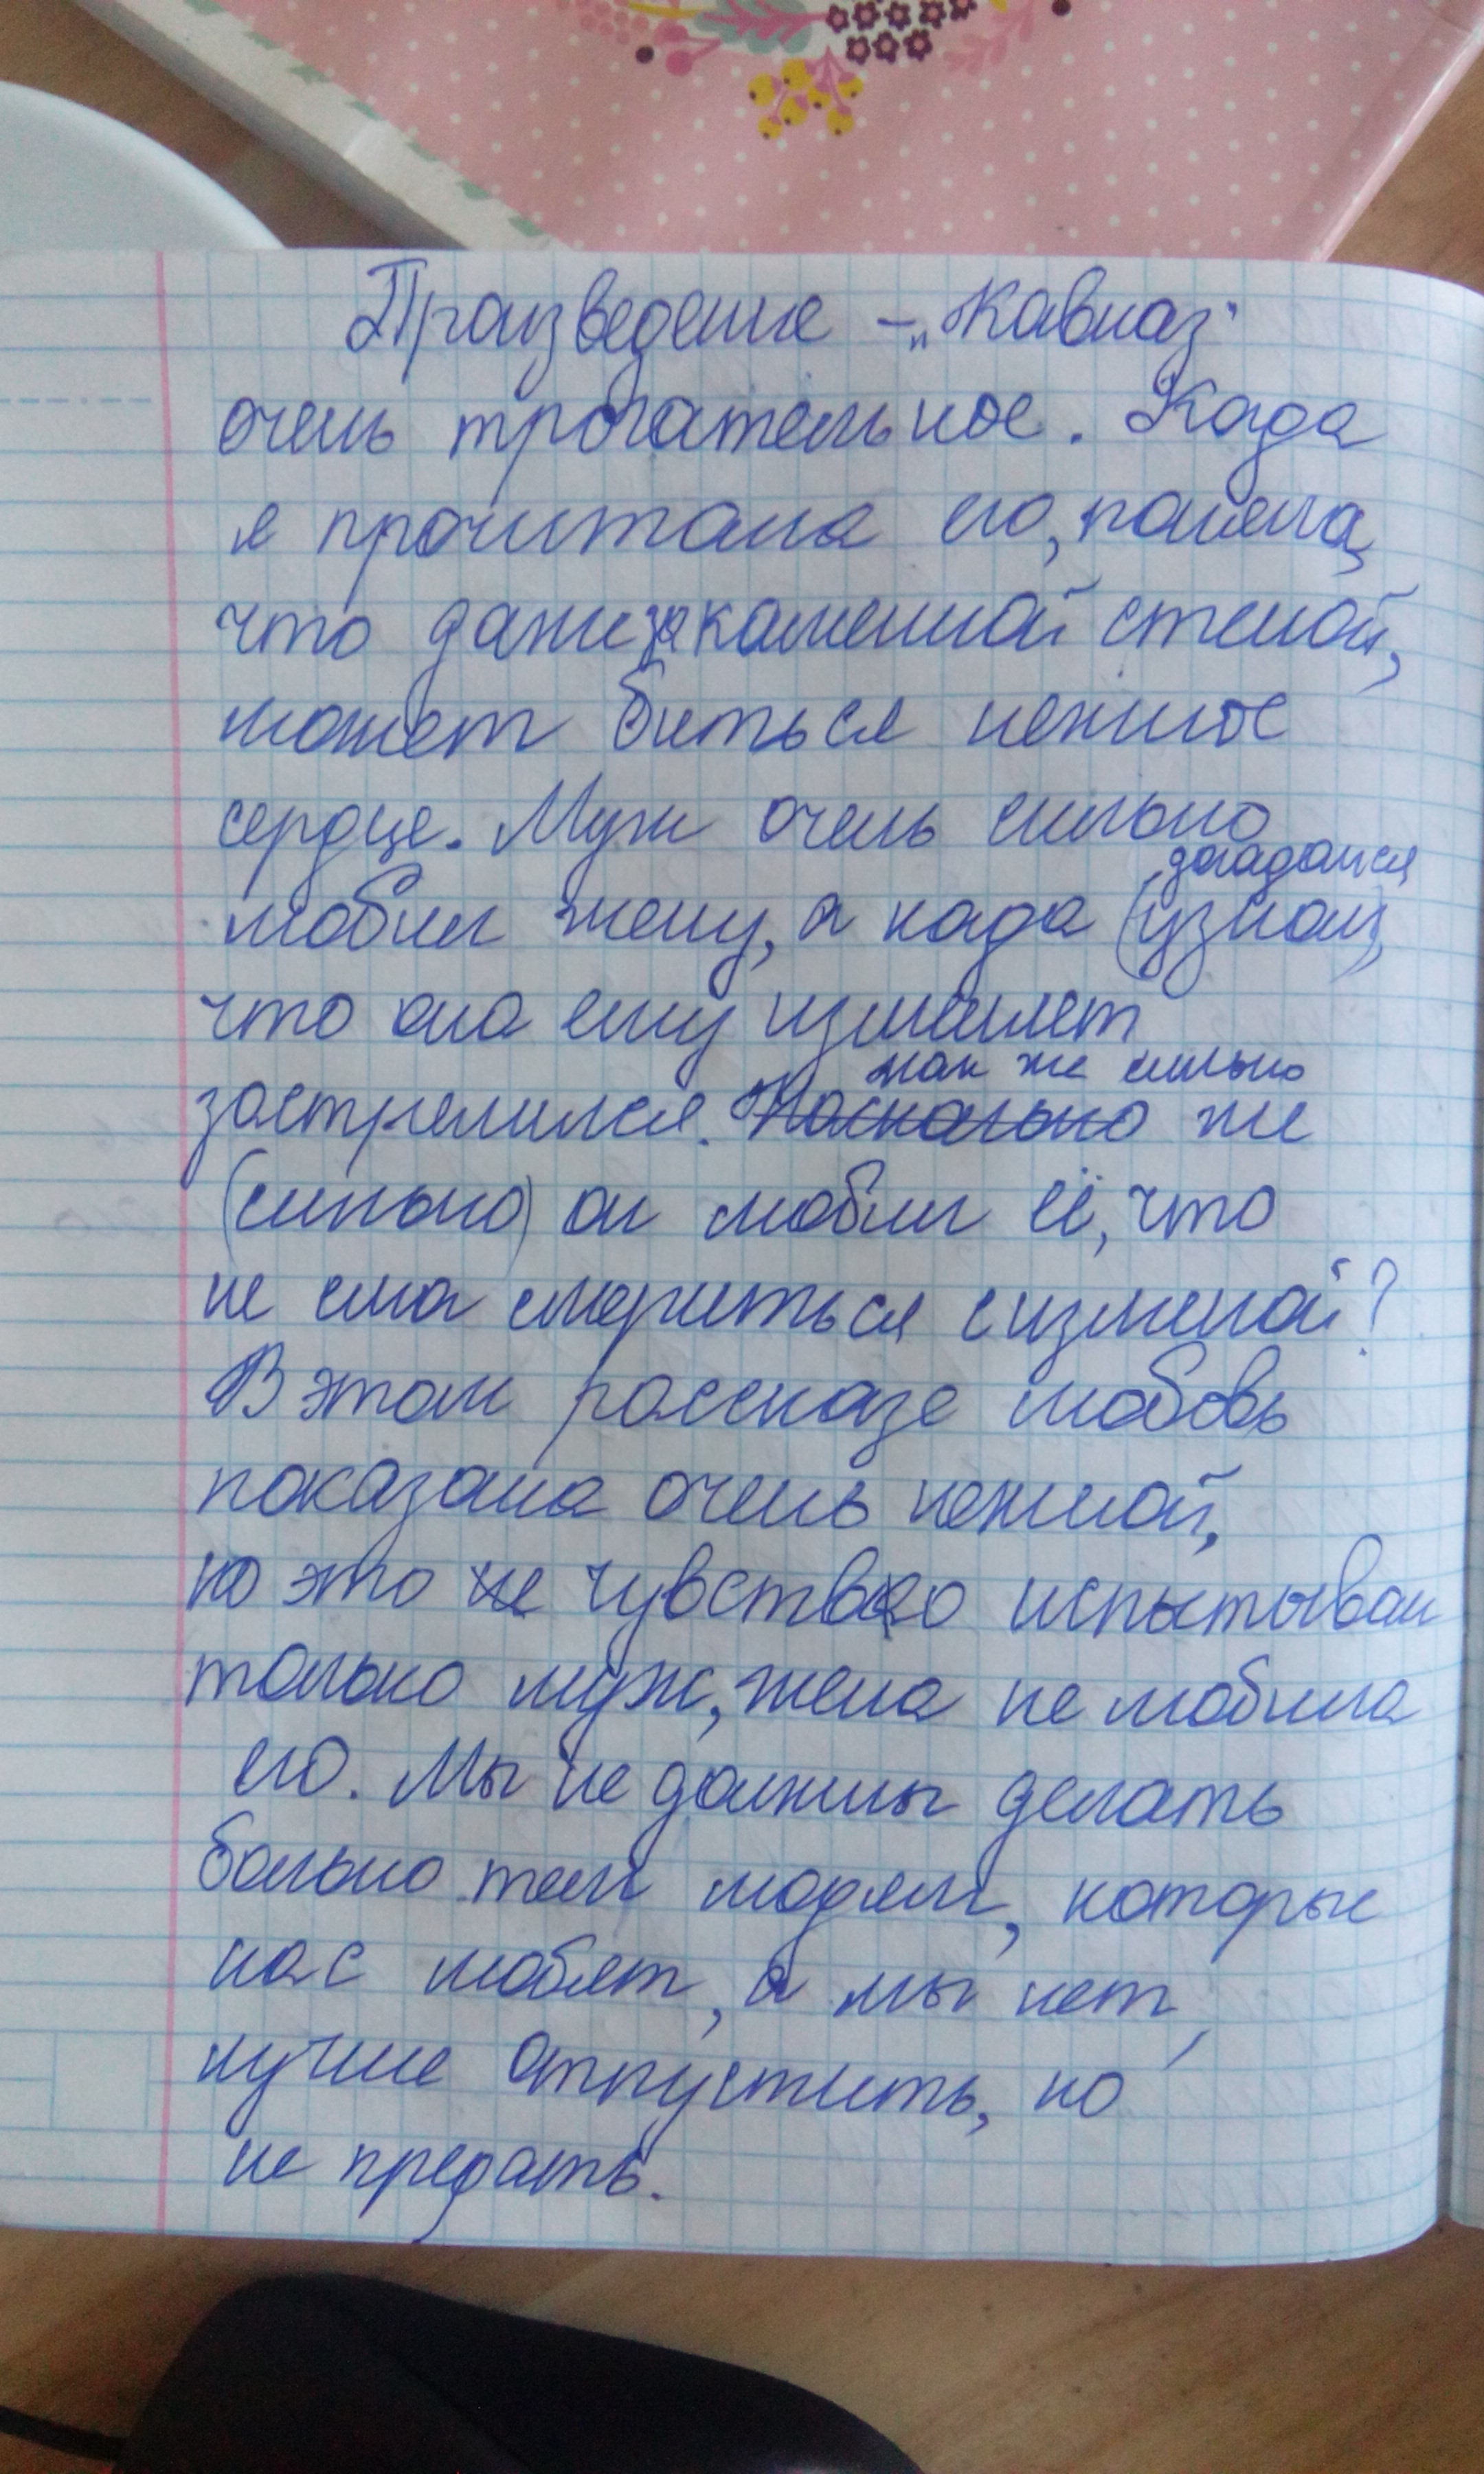 Произведение – „Кавказ"
очень трогательное. Када
я прочитала его, поняла,
что даже за каменной стеной,
может биться нежное
сердце. Муж очень сильно
догадался
любил жену, а када (узнал)
что она ему изменяет
как же сильно
застрелился. Насколько же
(сильно) он любил её, что
не смог смириться с изменой?
В этом рассказе любовь
показана очень нежной,
но это не чувство испытывал
только муж, жена не любила
его. Мы не должны делать
больно тем людям, которые
нас любят, а мы нет,
лучше отпустить, но
не предать.